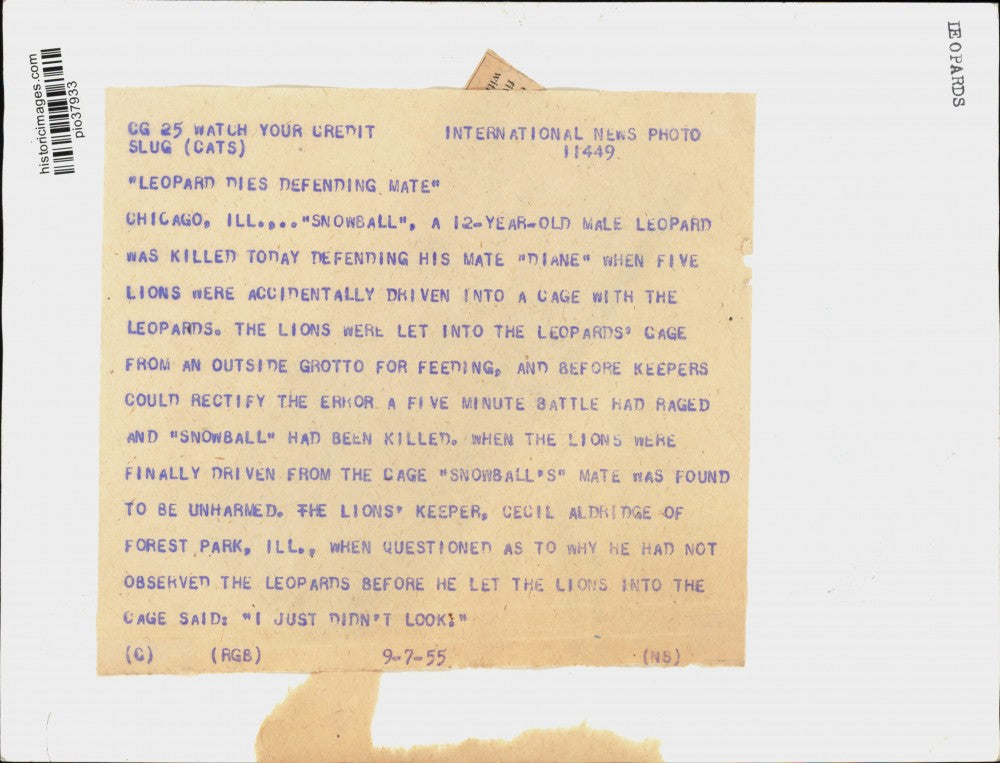 LEOPARDS
historicimages.com
pio37933
CG 25 WATCH YOUR CREDIT INTERNATIONAL NEWS PHOTO
SLUG (CATS) 11449
"LEOPARD DIES DEFENDING MATE"
CHICAGO, ILL...."SNOWBALL", A 12-YEAR-OLD MALE LEOPARD
WAS KILLED TODAY DEFENDING HIS MATE "DIANE" WHEN FIVE
LIONS WERE ACCIDENTALLY DRIVEN INTO A CAGE WITH THE
LEOPARDS. THE LIONS WERE LET INTO THE LEOPARDS' CAGE
FROM AN OUTSIDE GROTTO FOR FEEDING, AND BEFORE KEEPERS
COULD RECTIFY THE ERROR A FIVE MINUTE BATTLE HAD RAGED
AND "SNOWBALL" HAD BEEN KILLED. WHEN THE LIONS WERE
FINALLY DRIVEN FROM THE CAGE "SNOWBALL'S" MATE WAS FOUND
TO BE UNHARMED. THE LIONS' KEEPER, CECIL ALDRIDGE OF
FOREST PARK, ILL., WHEN QUESTIONED AS TO WHY HE HAD NOT
OBSERVED THE LEOPARDS BEFORE HE LET THE LIONS INTO THE
CAGE SAID: "I JUST DIDN'T LOOK."
(C) (RGB) 9-7-55 (NS)